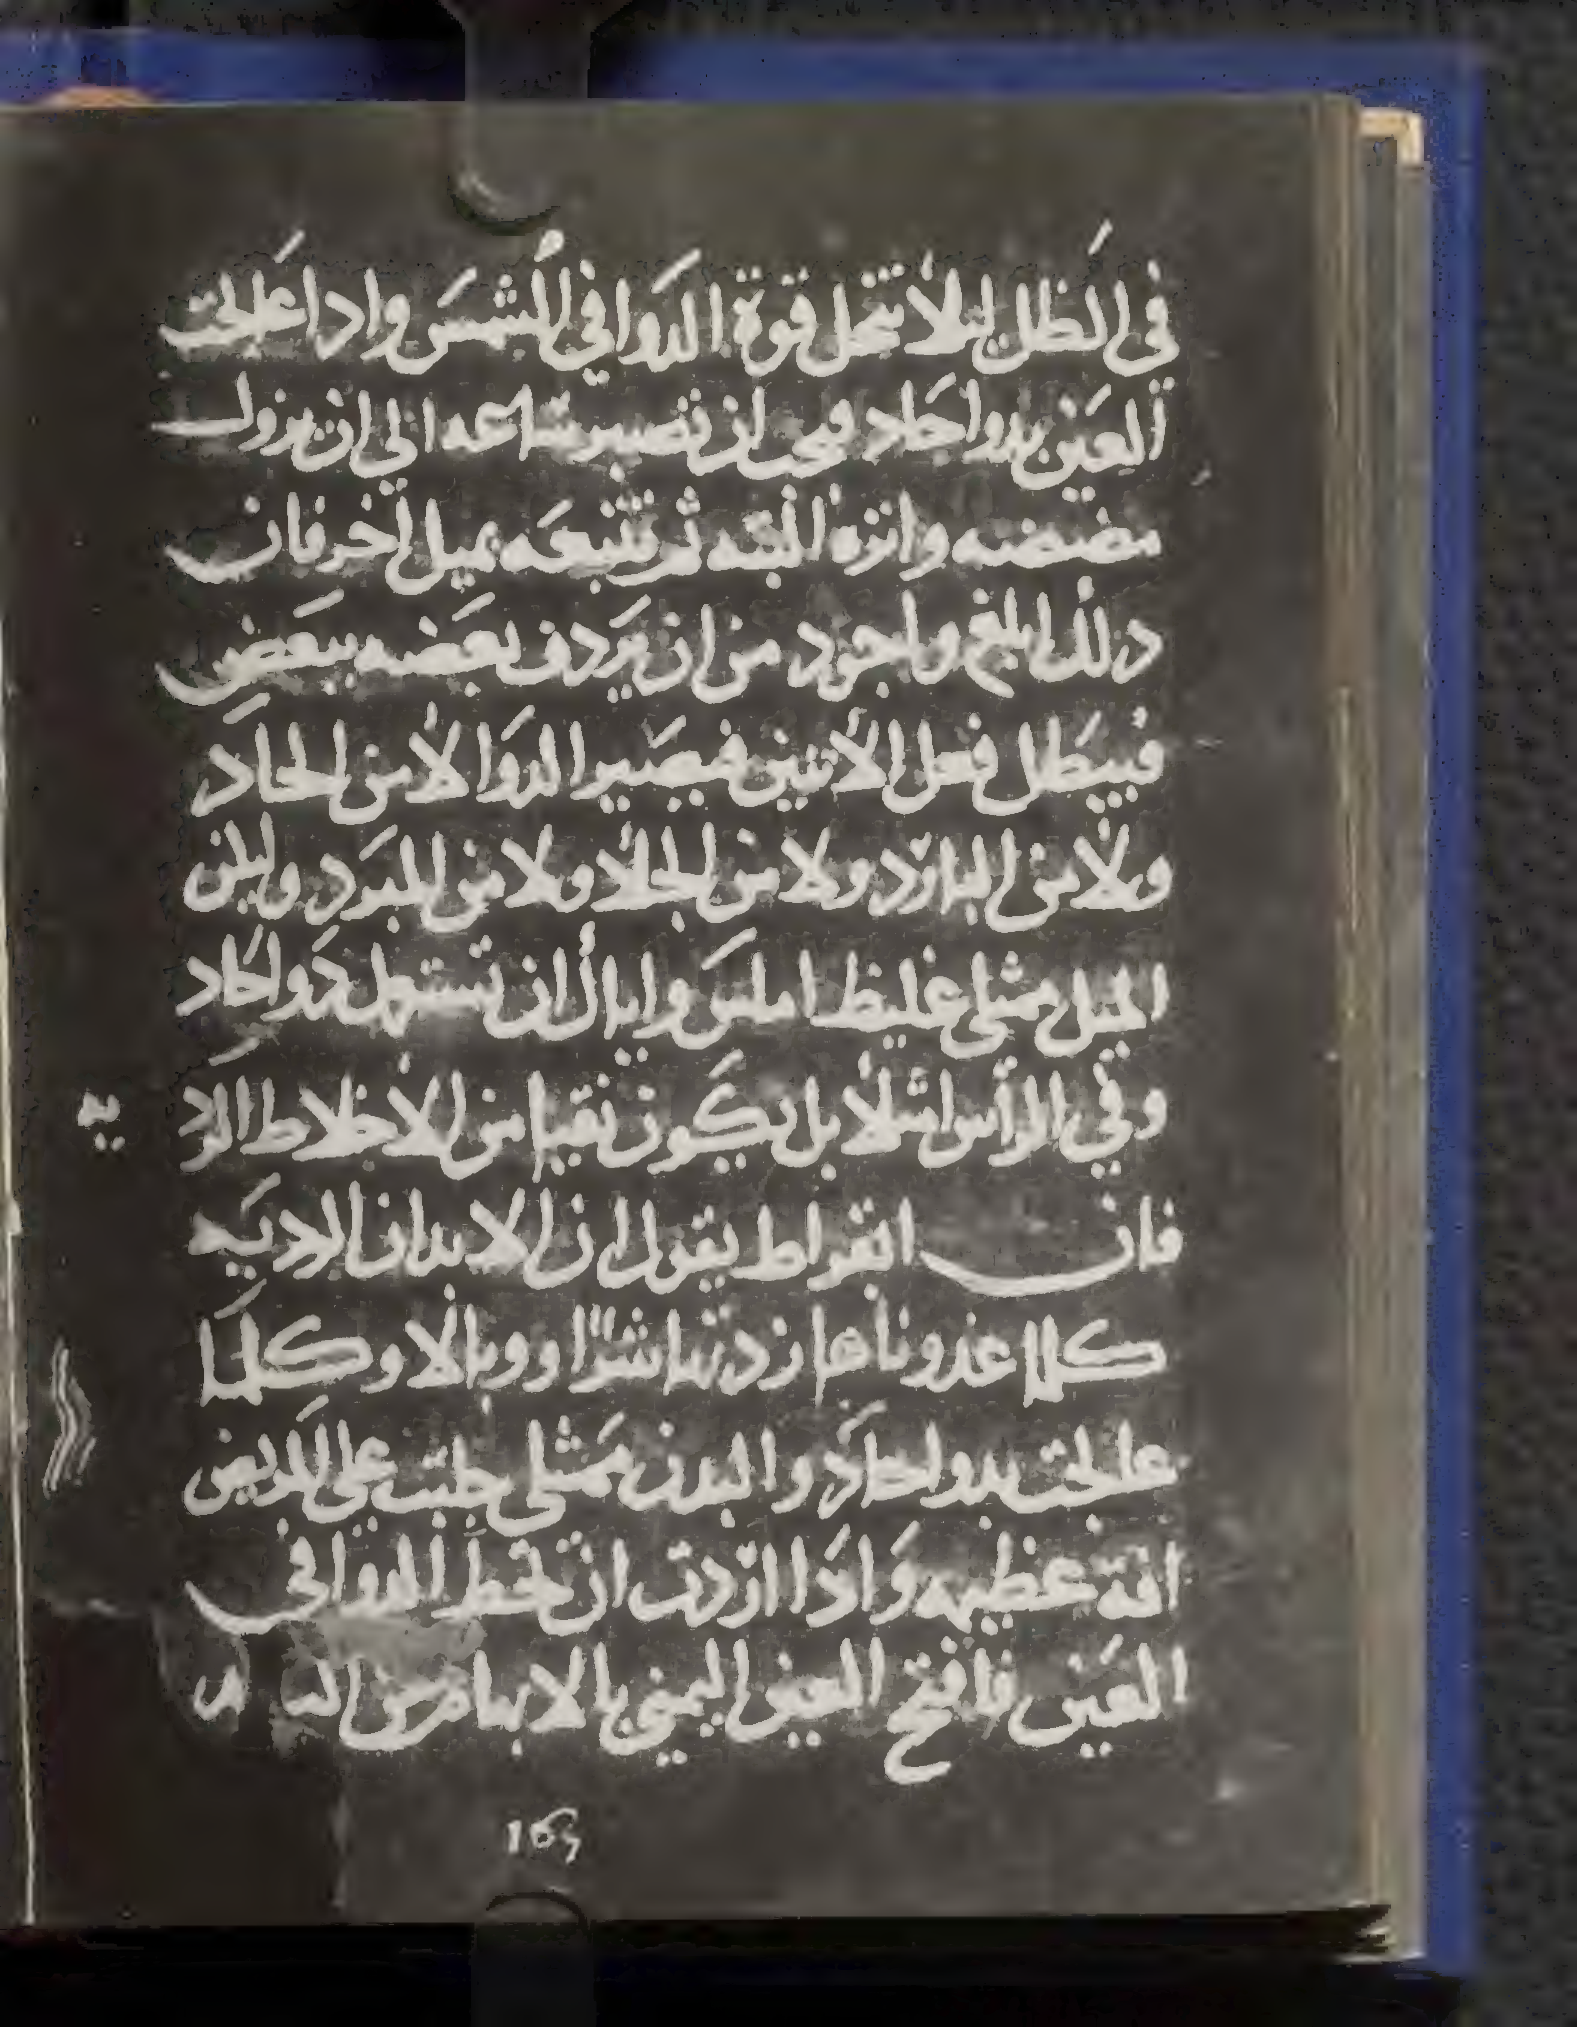 في الظل ليلا تنحل قوة الدوا في الشمس واذا عالجت
العين بدوا حاد فيجب ان تصبر ساعه الي ان يزول
مضضه واثره البته ثم تتبعه بميل اخر فان
ذلك ابلغ واجود من ان يردف بعضه ببعض
فيبطل فعل الاثنين فيصير الدوا لا من الحاد
ولا من البارد ولا من الجلا ولا من المبرد وليكن
الميل مثلي غليظ املس واياك ان تستعمل دوا حاد
وفي الراس امتلا بل يكون نقيا من الاخلاط الرد
يه
فان ابقراط يقول ان الابدان الرديه
كلما غذوناها زدناها شرا ووبالا وكلما
عالجت بدوا حاد والبدن ممتلي جلبت علي المريض
افة عظيمه واذا اردت ان تحط الدوا في
العين فافتح العين اليمني بالابهام من